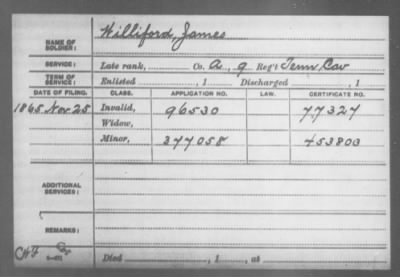 NAME OF SOLDIER: Williford, James
SERVICE: Late rank, Co. A, 9 Reg't Tenn. Cav
TERM OF SERVICE: Enlisted , 1 Discharged , 1
DATE OF FILING. CLASS. APPLICATION NO. LAW. CERTIFICATE NO.
1865 Nov 25 Invalid, 96530 77327
Widow,
Minor, 377058 453803
ADDITIONAL SERVICES:
REMARKS:
Died , 1 , at